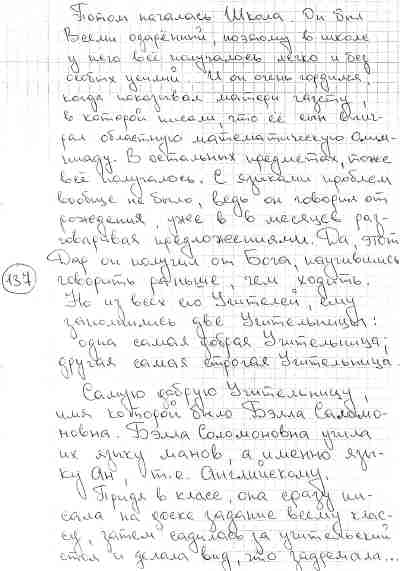 Потом началась Школа. Он был
Всеми одарённый, поэтому в школе
у него всё получалось легко и без
особых усилий. И он очень гордился,
когда показывал матери газету,
в которой писали, что её сын выиг-
рал областную математическую олим-
пиаду. В остальных предметах, тоже
всё получалось. С языками проблем
вообще не было, ведь он говорил от
рождения, уже в 6 месяцев раз-
говаривая предложениями. Да, этот
Дар он получил от Бога, научившись
137
говорить раньше, чем ходить.
Но из всех его Учителей, ему
запомнились две Учительницы:
одна самая добрая Учительница;
другая самая строгая Учительница.
Самую добрую Учительницу,
имя которой было Бэлла Саломо-
новна. Бэлла Соломоновна учила
их языку манов, а именно язы-
ку Ан, т.е. Английскому.
Придя в класс, она сразу пи-
сала на доске задание всему клас-
су, затем садилась за учительский
стол и делала вид, что задремала...